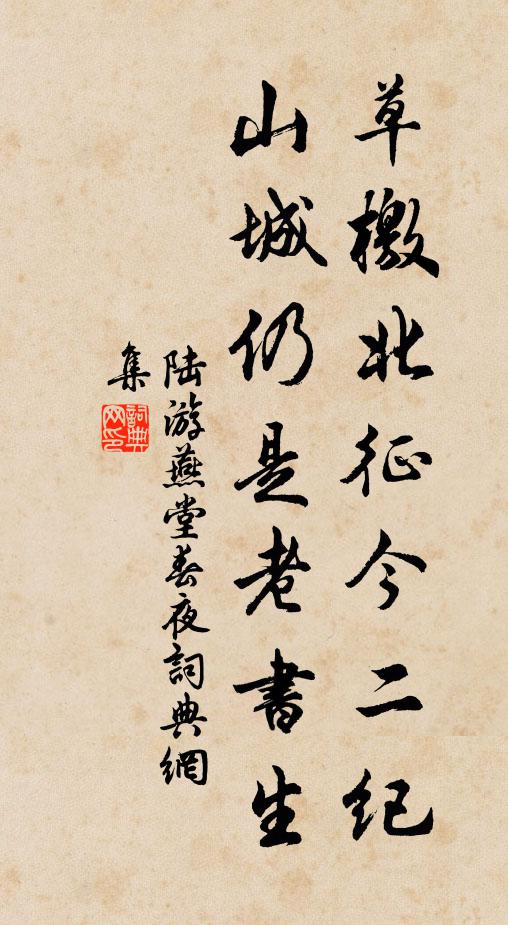 草檄北征今二纪
山城仍是老書生
陆游燕堂春夜詞典網
集
詞典
网印